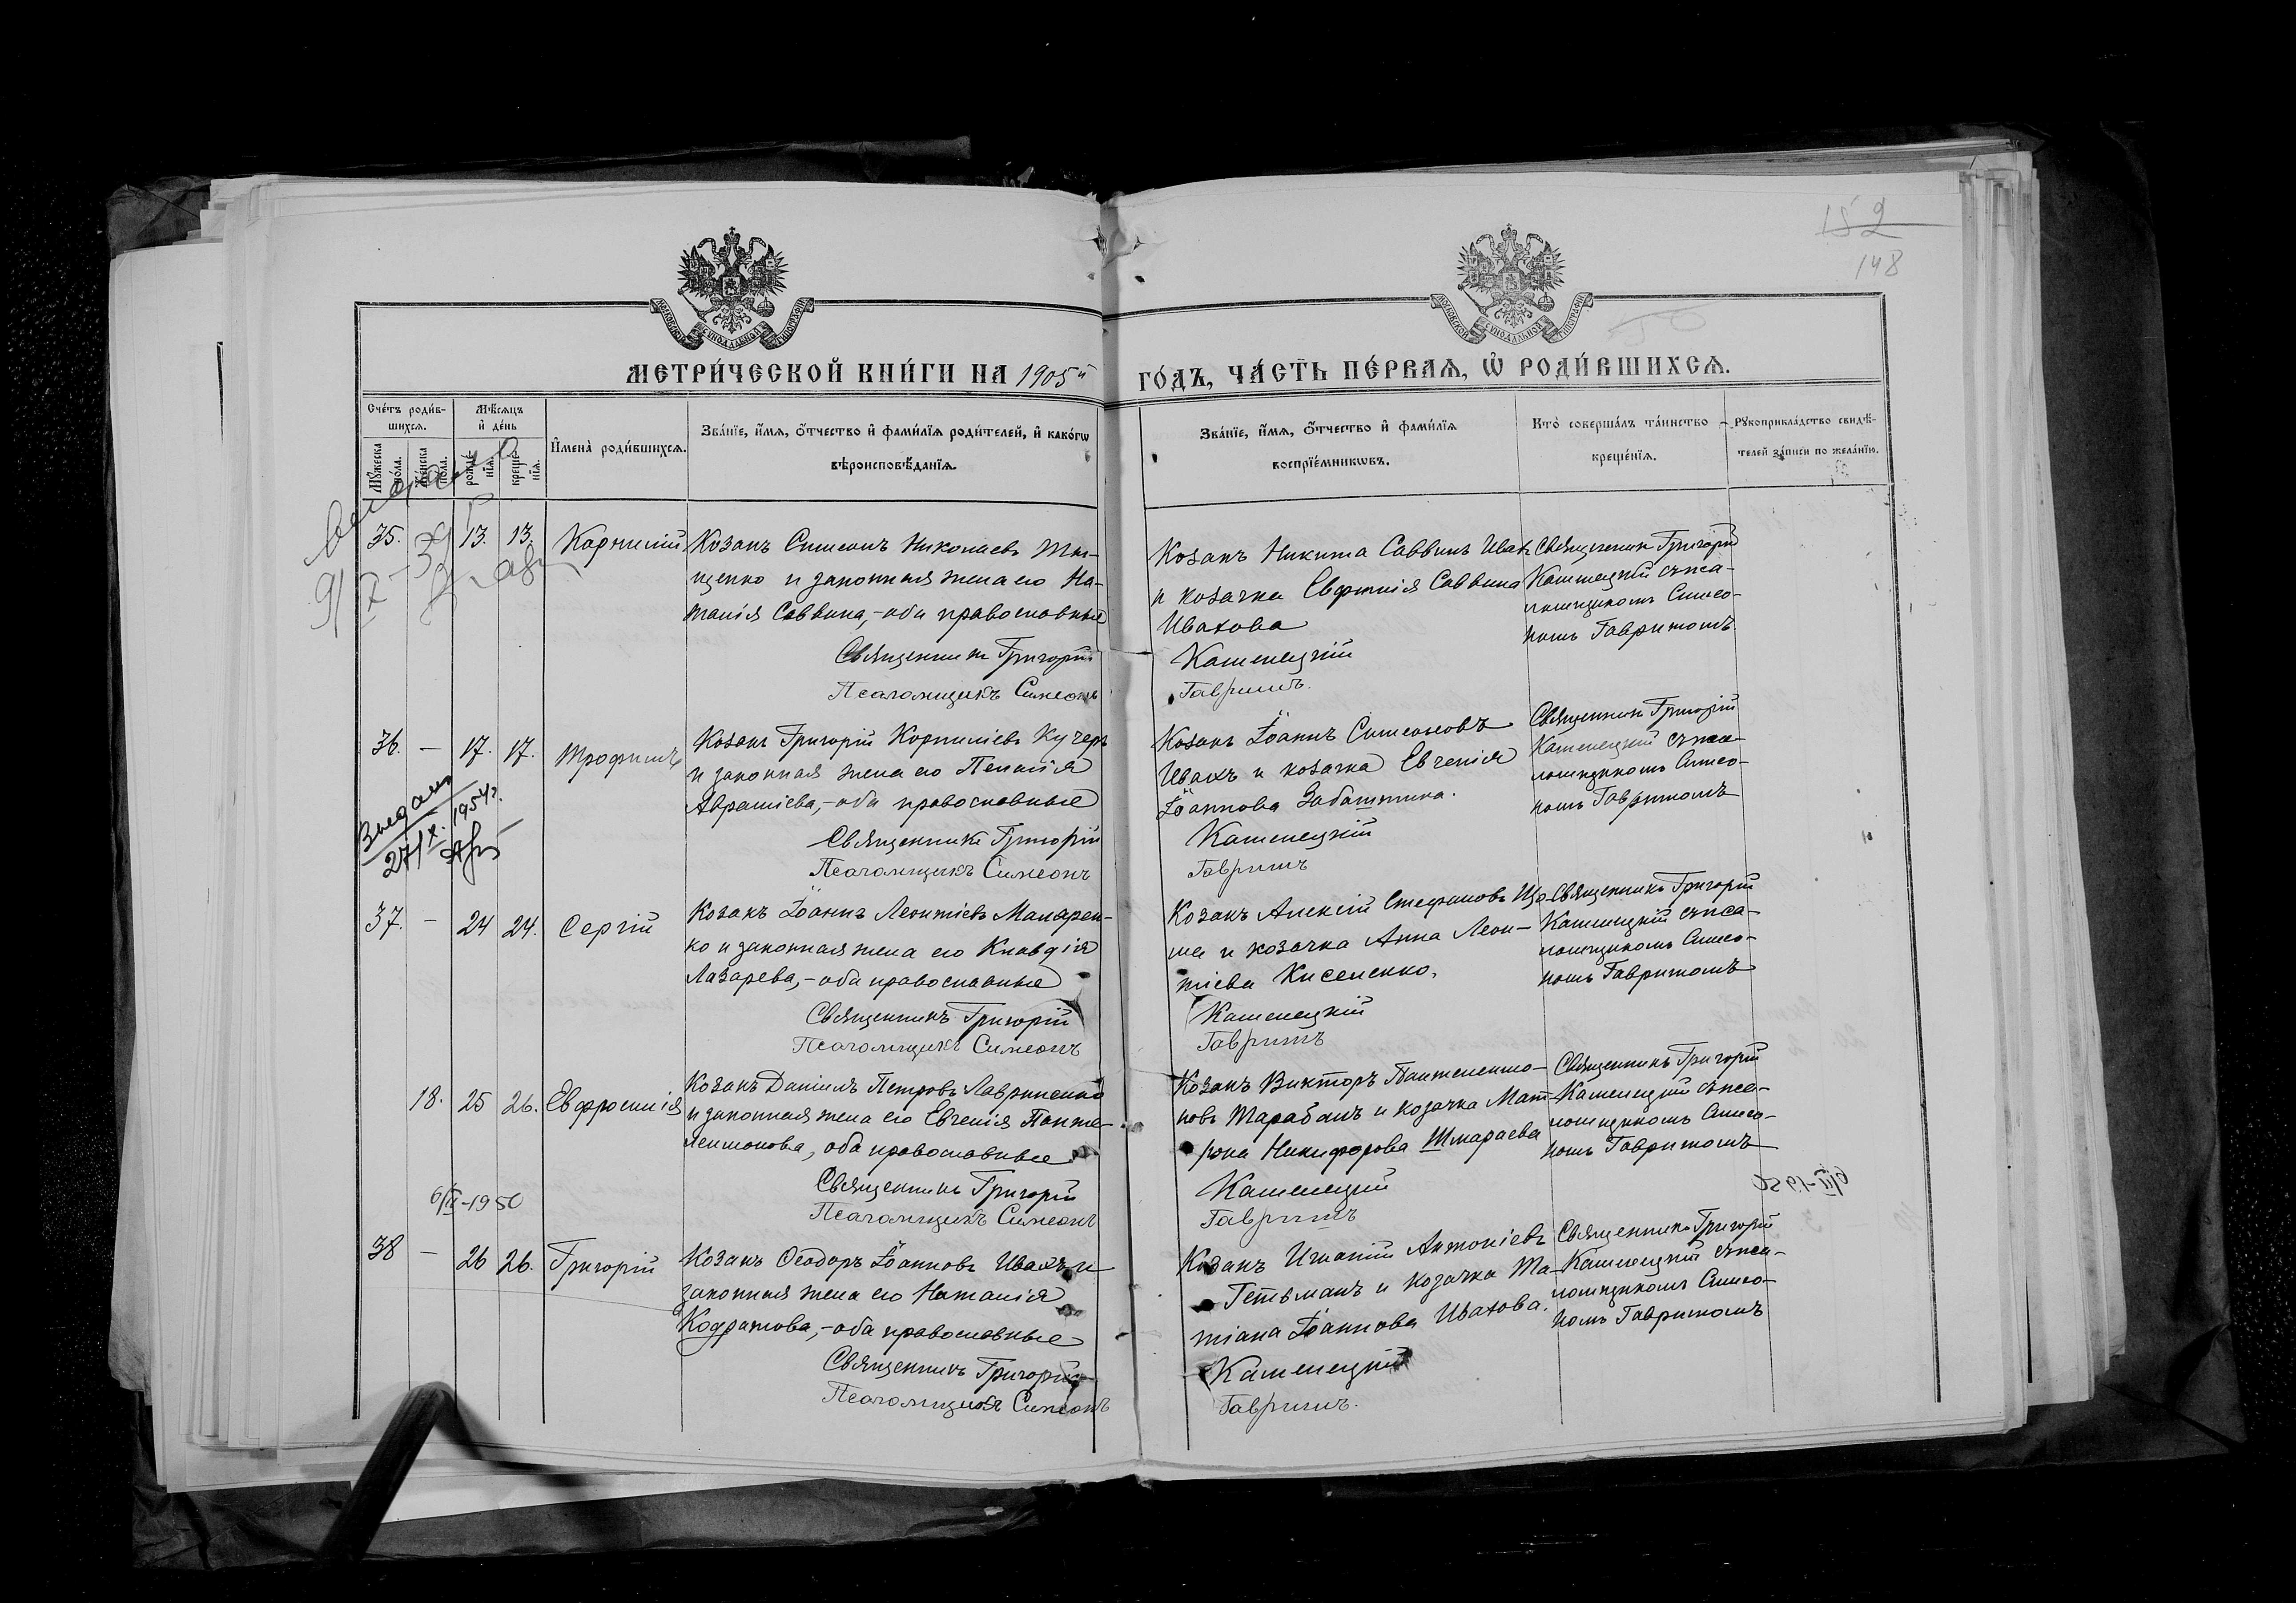 152
148
МЕТРИ́ЧЕСКОЙ КНИ́ГИ НА 1905й
ГО́ДЪ, ЧА́СТЬ ПЕ́РВАЯ, Ѡ҆ РОДИ́ВШИХСЯ.
Сче́тъ роди́в-
шихся.
Мѣ́сяцъ
и҆ де́нь
И҆мена̀ роди́вшихся.
Зва́нїе, и҆́мя, ѻ҆́тчество и҆ фами́лїя роди́телей, и҆ како́гѡ
вѣроисповѣ́данїя.
Мꙋ́жеска
по́ла.
Же́нска
по́ла.
рожде́-
нїя.
креще́-
нїя.
Зва́нїе, и҆́мя, ѻ҆́тчество и҆ фами́лїя
воспрїе́мникѡвъ.
Кто̀ соверша́лъ та́инство
креще́нїя.
Рꙋкоприкла́дство свидѣ́-
телей за́писи по жела́нїю.
35. 13. 13. Корнилій
Козакъ Симеонъ Николаевъ Ти-
щенко и законная жена его На-
талія Саввина,-оба православные
Священникъ Григорій
Псаломщикъ Симеонъ
Козакъ Никита Саввинъ Ивах
и козачка Евфимія Саввина
Ивахова
Каменецкій
Гавришъ.
Священникъ Григорій
Каменецкій съ пса-
ломщикомъ Симео-
номъ Гавришомъ
36. — 17. 17. Трофимъ
Козакъ Григорій Корниліевъ Кучеръ
и законная жена его Пелагія
Авраміева,-оба православные
Священникъ Григорій
Псаломщикъ Симеонъ
Козакъ Іоаннъ Симеоновъ
Ивахъ и козачка Евгенія
Іоаннова Забаштина.
Каменецкій
Гавришъ
Священникъ Григорій
Каменецкій съ пса-
ломщикомъ Симео-
номъ Гавришомъ
27/X. 1954г.
37. — 24 24. Сергій
Козакъ Іоаннъ Леонтіевъ Макарен-
ко и законная жена его Клавдія
Лазарева,-оба православные
Священникъ Григорій
Псаломщикъ Симеонъ
Козакъ Алексій Стефановъ
и козачка Анна Леон-
тіева Киселенко.
Каменецкій
Гавришъ
Священникъ Григорій
Каменецкій съ пса-
ломщикомъ Симео-
номъ Гавришомъ
18. 25 26. Евфросинія
Козакъ Даніилъ Петровъ Лавриненко
и законная жена его Евгенія Панте-
леимонова, оба православные
Священникъ Григорій
Псаломщикъ Симеонъ
Козакъ Викторъ Пантелеимо-
новъ Тарабанъ и козачка Мат-
рона Никифорова Шмараева
Каменецкій
Гавришъ
Священникъ Григорій
Каменецкій съ пса-
ломщикомъ Симео-
номъ Гавришомъ
6/II-1950
38 — 26 26. Григорій
Козакъ Ѳеодоръ Іоанновъ Ивахъ и
законная жена его Наталія
Кодратова,-оба православные
Священникъ Григорій
Псаломщикъ Симеонъ
Козакъ Игнатій Антоніевъ
Гетьманъ и козачка Та-
тіана Іоаннова Ивахова.
Каменецкій
Гавришъ.
Священникъ Григорій
Каменецкій съ пса-
ломщикомъ Симео-
номъ Гавришомъ